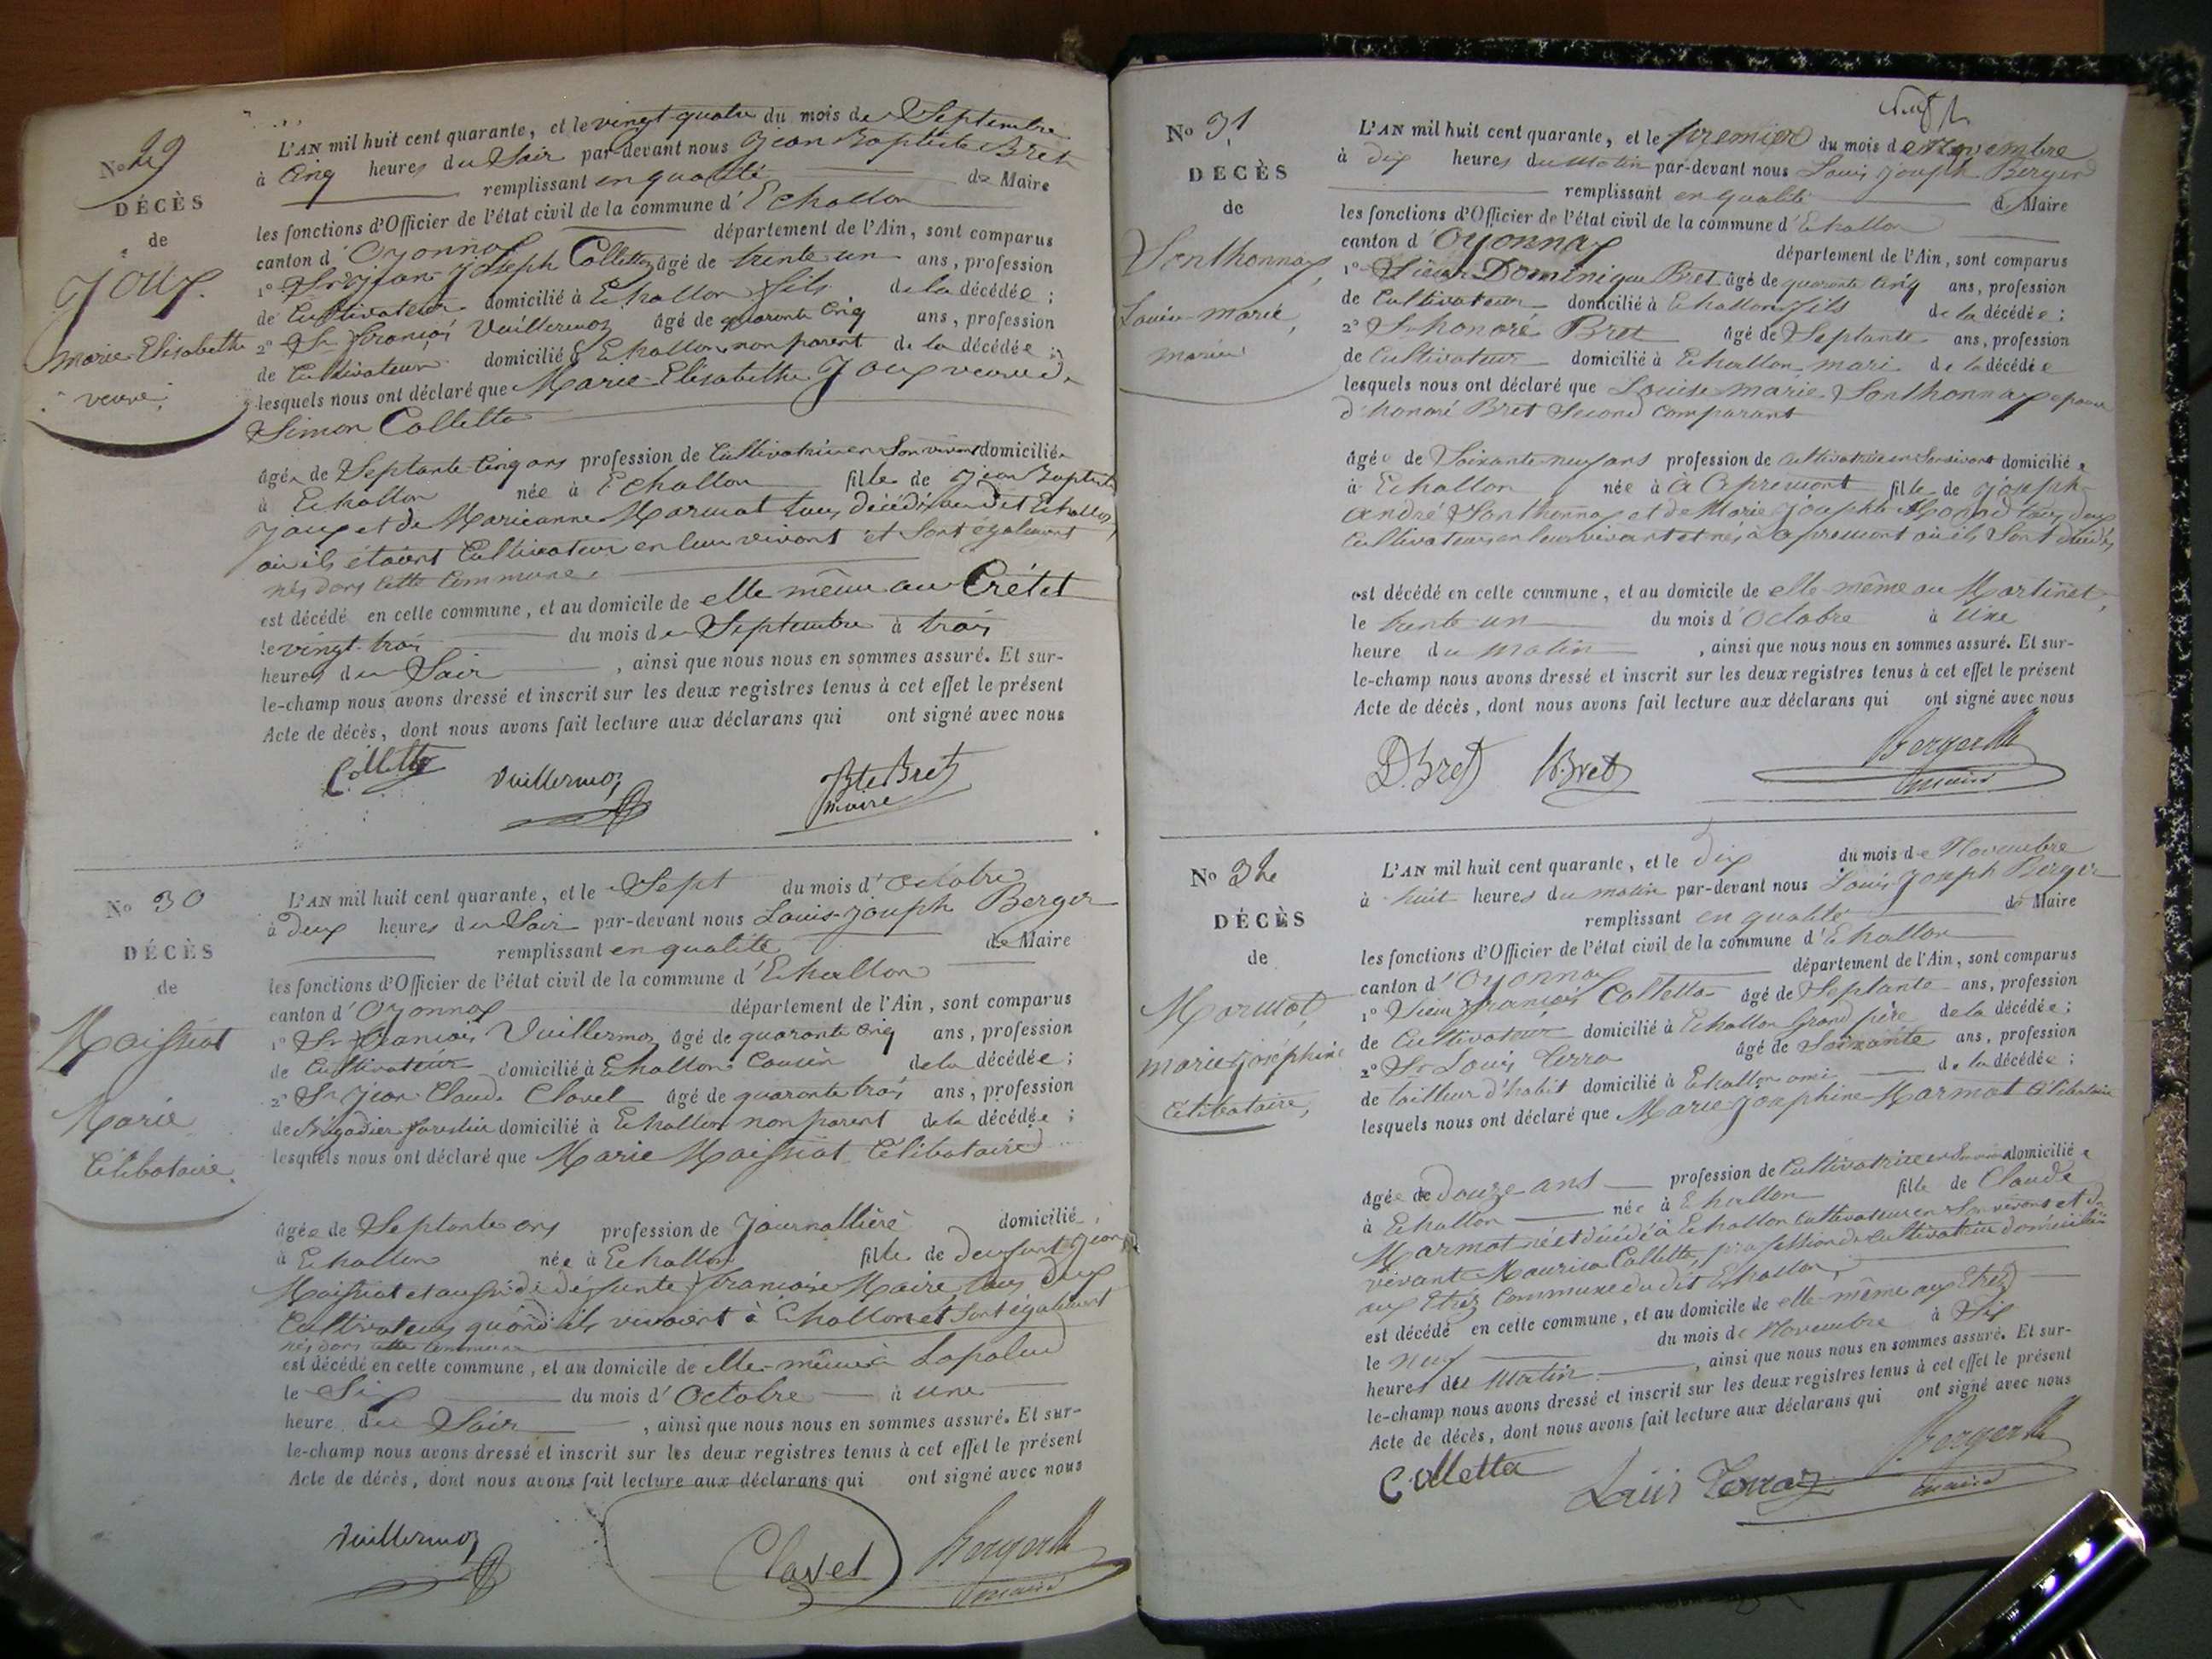 No 29
DÉCÈS
de
Joux
Marie Elisabethe
veuve
L'AN mil huit cent quarante, et le vingt quatre du mois de Septembre
à Cinq heures du Soir par-devant nous Jean Baptiste Bret
remplissant en qualité de Maire
les fonctions d'Officier de l'état civil de la commune d'Echallon
canton d'Oyonnax département de l'Ain, sont comparus
1° Sr Jean-Joseph Collettaz âgé de trente un ans, profession
de Cultivateur domicilié à Echallon fils de la décédée ;
2° Sr François Vuillermoz âgé de quarante Cinq ans, profession
de Cultivateur domicilié à Echallon non parent de la décédée ;
lesquels nous ont déclaré que Marie-Elisabethe Joux veuve de
Simon Colletta
âgée de Septante Cinq ans profession de Cultivatrice en Son vivant domiciliée
à Echallon née à Echallon fille de Jean Baptiste
Joux et de Marieanne Marmat tous décédés au dit Echallon
où ils étaient Cultivateur en leur vivant et Sont également
nés dans cette Commune
est décédé en cette commune, et au domicile de elle même au Crétet
le vingt-trois du mois de Septembre à trois
heures du Soir , ainsi que nous nous en sommes assuré. Et sur-
le-champ nous avons dressé et inscrit sur les deux registres tenus à cet effet le présent
Acte de décès, dont nous avons fait lecture aux déclarans qui ont signé avec nous
Colletta Vuillermoz Bte Bret
maire
No 30
DÉCÈS
de
Maissiat
Marie
Célibataire
L'AN mil huit cent quarante, et le Sept du mois d'Octobre
à deux heures du Soir par-devant nous Louis-Joseph Berger
remplissant en qualité de Maire
les fonctions d'Officier de l'état civil de la commune d'Echallon
canton d'Oyonnax département de l'Ain, sont comparus
1° Sr François Vuillermoz âgé de quarante Cinq ans, profession
de Cultivateur domicilié à Echallon Cousin de la décédée ;
2° Sr Jean Claude Clavel âgé de quarante trois ans, profession
de Brigadier forestier domicilié à Echallon non parent de la décédée ;
lesquels nous ont déclaré que Marie Maissiat Célibataire
âgée de Septante ans profession de Journallière domiciliée
à Echallon née à Echallon fille de deffunt Jean
Maissiat et aussi de défunte Françoise Maire tous deux
Cultivateurs quand ils vivaient à Echallon et Sont également
nés dans cette Commune
est décédé en cette commune, et au domicile de elle-même à Lapalud
le Six du mois d'Octobre à une
heure du Soir , ainsi que nous nous en sommes assuré. Et sur-
le-champ nous avons dressé et inscrit sur les deux registres tenus à cet effet le présent
Acte de décès, dont nous avons fait lecture aux déclarans qui ont signé avec nous
Vuillermoz Clavel Berger
maire
No 31
DÉCÈS
de
Sonthonnax
Louise-marie
mariée
L'AN mil huit cent quarante, et le premier du mois de Novembre
à dix heures du Matin par-devant nous Louis Joseph Berger
remplissant en qualité de Maire
les fonctions d'Officier de l'état civil de la commune d'Echallon
canton d'Oyonnax département de l'Ain, sont comparus
1° Sieur Dominique Bret âgé de quarante Cinq ans, profession
de Cultivateur domicilié à Echallon fils de la décédée ;
2° Sr honoré Bret âgé de Septante ans, profession
de Cultivateur domicilié à Echallon mari de la décédée
lesquels nous ont déclaré que Louise Marie Sonthonnax épouse
d'honoré Bret Second Comparant
âgée de Soixante neuf ans profession de Cultivatrice en Son vivant domiciliée
à Echallon née à Apremont fille de Joseph
André Sonthonnax et de Marie Josephte tous deux
Cultivateurs en leur vivant et nés à Apremont où ils Sont décédés
est décédé en cette commune, et au domicile de elle même au Martinet
le trente un du mois d'Octobre à une
heure du Matin , ainsi que nous nous en sommes assuré. Et sur-
le-champ nous avons dressé et inscrit sur les deux registres tenus à cet effet le présent
Acte de décès, dont nous avons fait lecture aux déclarans qui ont signé avec nous
D. Bret H. Bret Berger
maire
No 32
DÉCÈS
de
Marmat
Marie-joséphine
Célibataire
L'AN mil huit cent quarante, et le dix du mois de Novembre
à huit heures du matin par-devant nous Louis-Joseph Berger
remplissant en qualité de Maire
les fonctions d'Officier de l'état civil de la commune d'Echallon
canton d'Oyonnax département de l'Ain, sont comparus
1° Sieur François Colletta âgé de Septante ans, profession
de Cultivateur domicilié à Echallon Grand père de la décédée ;
2° Sr Louis Terraz âgé de Soixante ans, profession
de tailleur d'habit domicilié à Echallon ami de la décédée ;
lesquels nous ont déclaré que Marie-Josephine Marmat Célibataire
âgée de douze ans profession de Cultivatrice en Son vivant domiciliée
à Echallon née à Echallon fille de Claude
Marmat né et décédé à Echallon Cultivateur en Son vivant et de
vivante Maurice Colletta, profession de Cultivatrice domiciliée
aux Etrés Commune du dit Echallon
est décédé en cette commune, et au domicile de elle-même aux Etrés
le neuf du mois de Novembre à Six
heures du Matin , ainsi que nous nous en sommes assuré. Et sur-
le-champ nous avons dressé et inscrit sur les deux registres tenus à cet effet le présent
Acte de décès, dont nous avons fait lecture aux déclarans qui ont signé avec nous
Colletta Louis Terraz Berger
maire